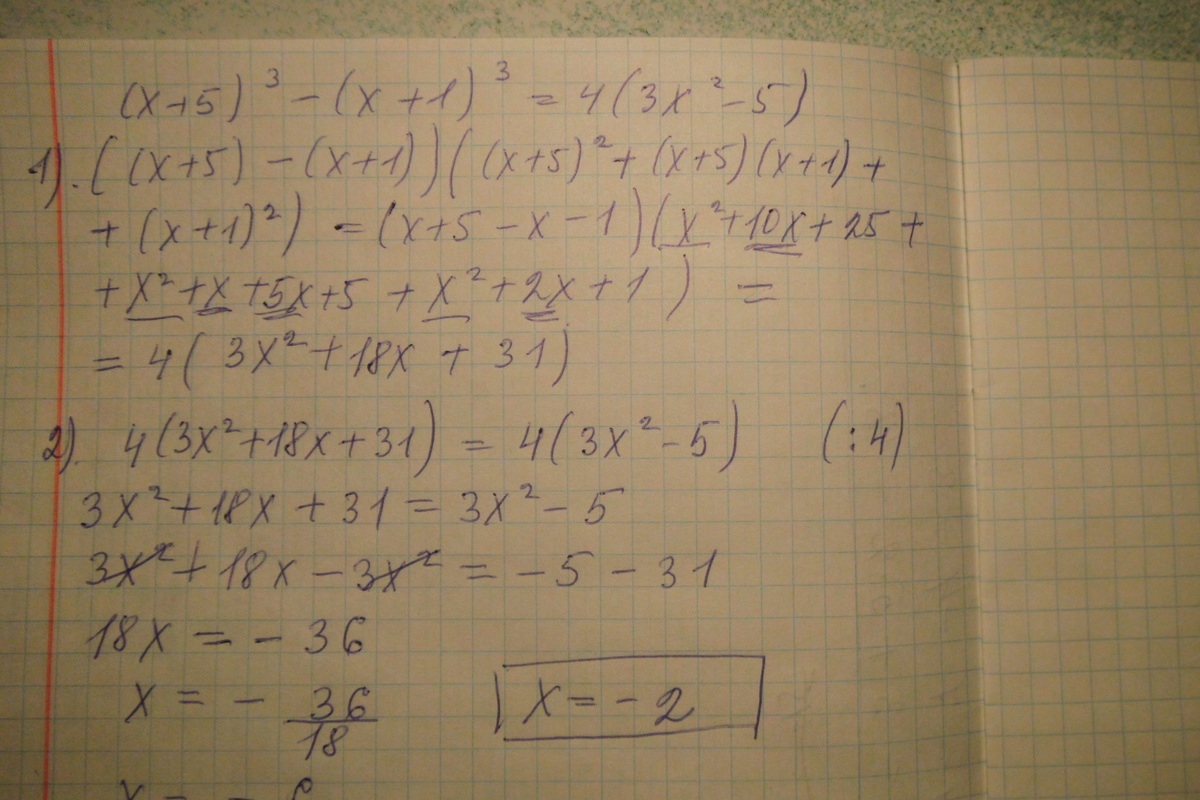 (x+5)³ - (x+1)³ = 4(3x² - 5)
1). ((x+5) - (x+1))((x+5)² + (x+5)(x+1) +
+ (x+1)²) = (x+5-x-1)(x² + 10x + 25 +
+ x² + x + 5x + 5 + x² + 2x + 1) =
= 4(3x² + 18x + 31)
2). 4(3x² + 18x + 31) = 4(3x² - 5) (:4)
3x² + 18x + 31 = 3x² - 5
3x² + 18x - 3x² = -5 - 31
18x = - 36
x = - 36/18
x = - 2